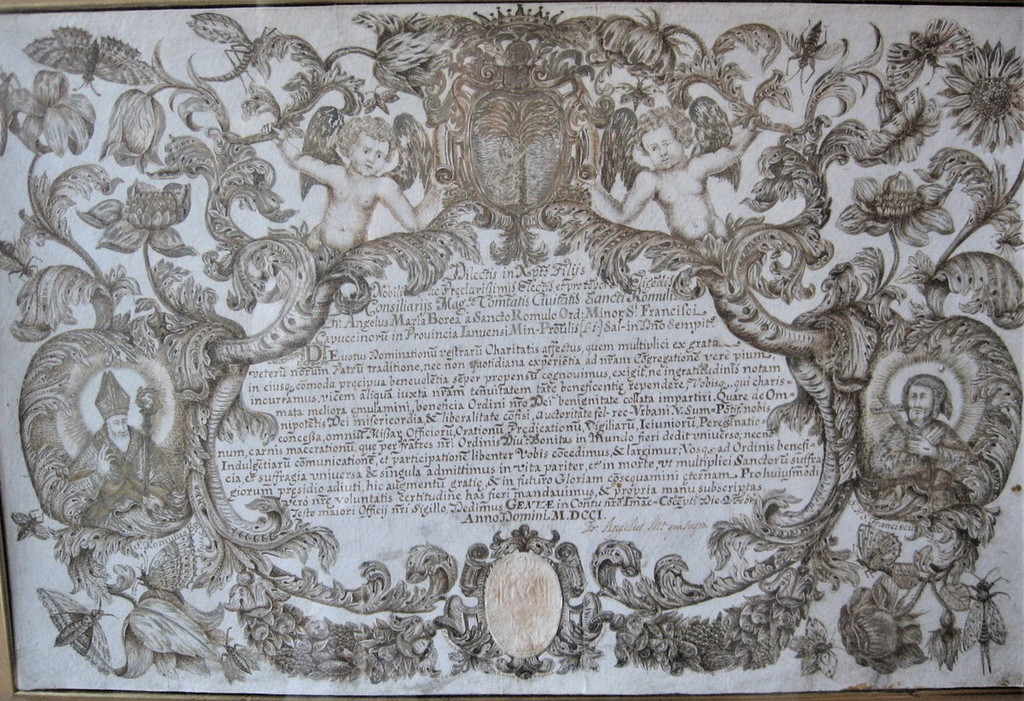 Dilectis in Xpto Filijs
Nobilib. ac Preclarissimis Electis et pro tempore Eligedis
Consiliarijs Mag.ce Comitatis Civitatis Sancti Romuli
Fr. Angelus Maria Borea à Sancto Romulo Ord: Minor S.ti Francisci
Capuccinorū in Provincia Ianuensi Min-Provilis (l:i:) Sal-in Dno Sempit.
DEvotus Nominationū vestrarū Charitatis affectus, quem multiplici ex grata
veterū nōrum Patrū traditione, nec non quotidiana experiētia ad nr̄am Cōgregationē verè pium,
in eiusq, comoda precipua benevolētia sēper propensū cognovimus, exigit, ne ingratitudinis notam
incurramus, vicem aliquā iuxta nr̄am tenuitatem tatę beneficentię rependere. Vobisq, qui charis-
mata meliora ęmulamini, beneficia Ordini nr̄o Dei benignitate collata impartiri. Quare de Om-
nipotētis Dei misericordia & liberalitate cōfisi, auctoritate fel-rec-Urbani V. Sum-Pōtif. nobis
concessa, omniū Missar, Officiorū, Orationū, Predicationū, Vigiliarū, Ieiuniorū, Peregrinatio-
num, carnis macerationū, que per fratres nr̄i Ordinis Div. Bonitas in Mundo fieri dedit universo, necnō
Indulgētiarū cōmunicationē, et participationē libenter Vobis cōcedimus, & largimur; Vosq, ad Ordinis benefi-
cia, et suffragia universa & singula admittimus in vita pariter, et in morte, ut multiplici Sanctorū suffra
giorum presidio aduiti, hic augmentū gratię, & in futuro Gloriam cōsequamini ęternam. Pro huiusmodi
ergo voluntatis certitudine has fieri mandavimus, & propria manu subscriptas
Teste maiori Officij nr̄i Sigillo. Dedimus GENUÆ in Conventu nr̄o Imac-Cōceptis Die 2. Febr.
Anno Domini M.DCCI
Fr. Angelus M.a
S. Romulus
S. Franciscus